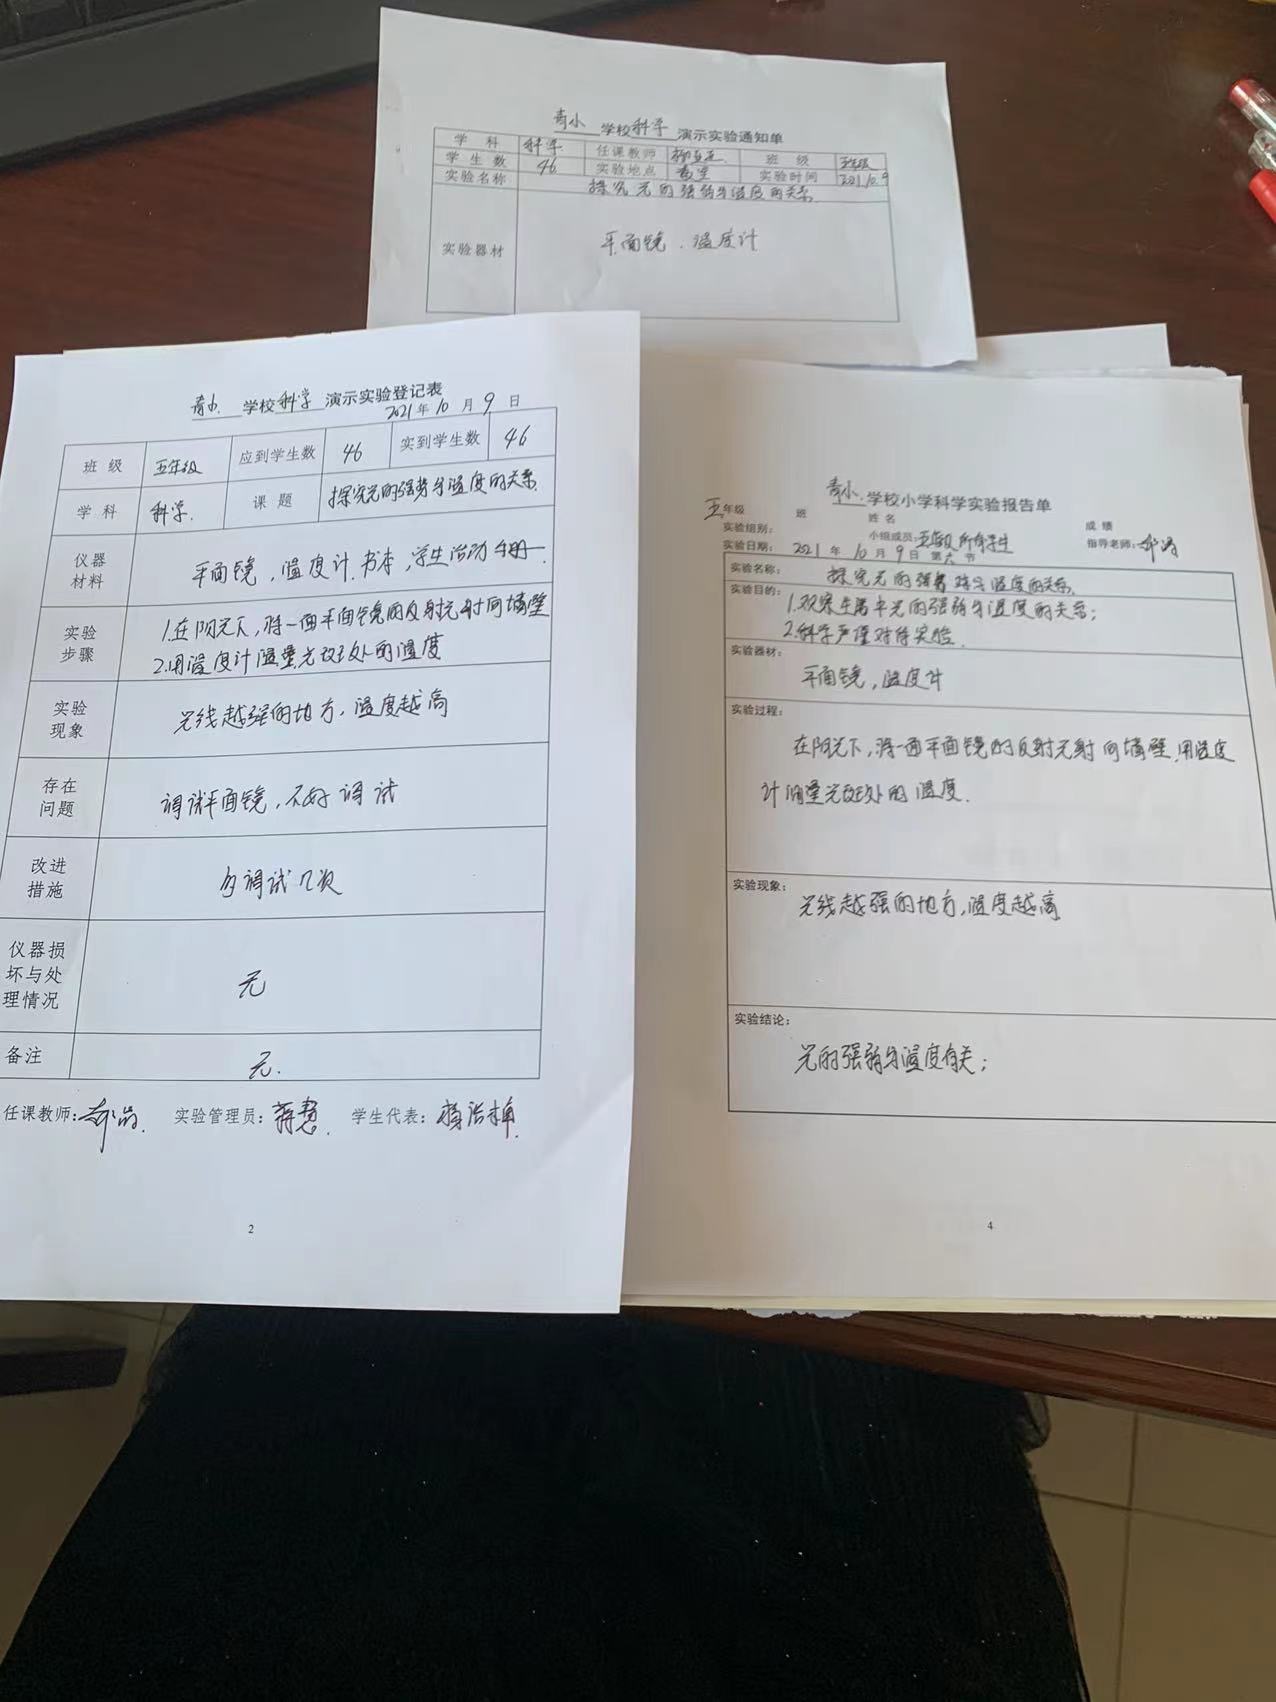 青小 学校科学 演示实验通知单
学 科 科学 任课教师 班 级 五年级
学 生 数 46 实验地点 教室 实验时间 2021.10.9
实验名称 探究光的强弱与温度的关系
实验器材 平面镜、温度计
青小 学校科学 演示实验登记表
2021年10月9日
班 级 五年级 应到学生数 46 实到学生数 46
学 科 科学. 课 题 探究光的强弱与温度的关系
仪器
材料
平面镜,温度计.书本,学生活动手册
实验
步骤
1.在阳光下,将一面平面镜的反射光射向墙壁
2.用温度计温量光斑处的温度
实验
现象
光线越强的地方,温度越高
存在
问题
调试平面镜,不好调试
改进
措施
多调试几次
仪器损
坏与处
理情况
无
备注 无.
任课教师: 实验管理员: 学生代表:
2
青小 学校小学科学实验报告单
五年级 班 姓 名 成 绩
实验组别: 小组成员:五年级所有学生 指导老师:
实验日期: 2021 年 10 月 9 日 第六 节
实验名称: 探究光的强弱与温度的关系
实验目的: 1.观察生活中光的强弱与温度的关系;
2.科学严谨对待实验.
实验器材:
平面镜,温度计
实验过程:
在阳光下,将一面平面镜的反射光射向墙壁,用温度
计测量光斑处的温度.
实验现象:
光线越强的地方,温度越高
实验结论:
光的强弱与温度有关;
4